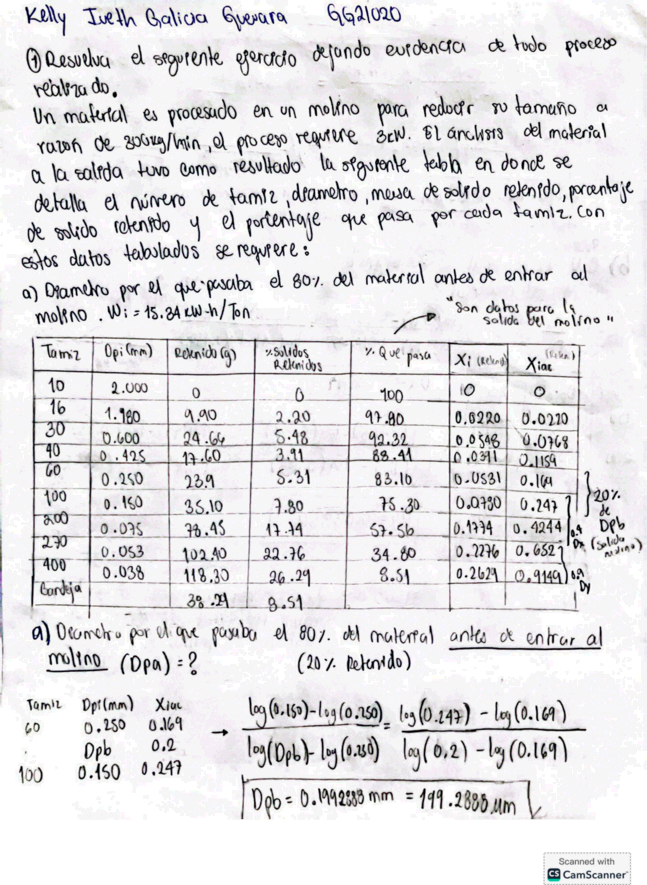 Kelly Iveth Galicia Guevara GG21020
① Resuelva el siguiente ejercicio dejando evidencia de todo proceso
realizado.
Un material es procesado en un molino para reducir su tamaño a
razón de 300kg/min, el proceso requiere 3kW. El análisis del material
a la salida tuvo como resultado la siguiente tabla en donde se
detalla el número de tamiz, diametro, masa de solido retenido, porcentaje
de solido retenido y el porcentaje que pasa por cada tamiz. Con
estos datos tabulados se requiere:
a) Diametro por el que pasaba el 80% del material antes de entrar al
molino. Wi = 15.34 KW-h/Ton
"Son datos para la
salida del molino"
Tamiz Dpi (mm) Retenido (g) % Solidos Retenidos % Que pasa Xi (Reteni) Xiac
10 2.000 0 0 100 0 0
16 1.180 9.90 2.20 97.80 0.0220 0.0220
30 0.600 24.64 5.48 92.32 0.0548 0.0768
40 0.425 17.60 3.91 88.41 0.0391 0.1159
60 0.250 23.9 5.31 83.10 0.0531 0.169
100 0.150 35.10 7.80 75.30 0.0780 0.247
200 0.075 78.45 17.74 57.56 0.1774 0.4244
270 0.053 102.40 22.76 34.80 0.2276 0.652
400 0.038 118.30 26.29 8.51 0.2629 0.9149
Bandeja 38.29 8.51
20%
de
Dpb
(salida
molino)
a) Diametro por el que pasaba el 80% del material antes de entrar al
molino (Dpa) = ? (20% Retenido)
Tamiz Dpi(mm) Xiac
60 0.250 0.169
Dpb 0.2
100 0.150 0.247
→ log(0.150)-log(0.250) = log(0.247) - log(0.169)
log(Dpb)-log(0.250) log(0.2) - log(0.169)
Dpb = 0.1992888 mm = 199.2888 µm
Scanned with
CS CamScanner